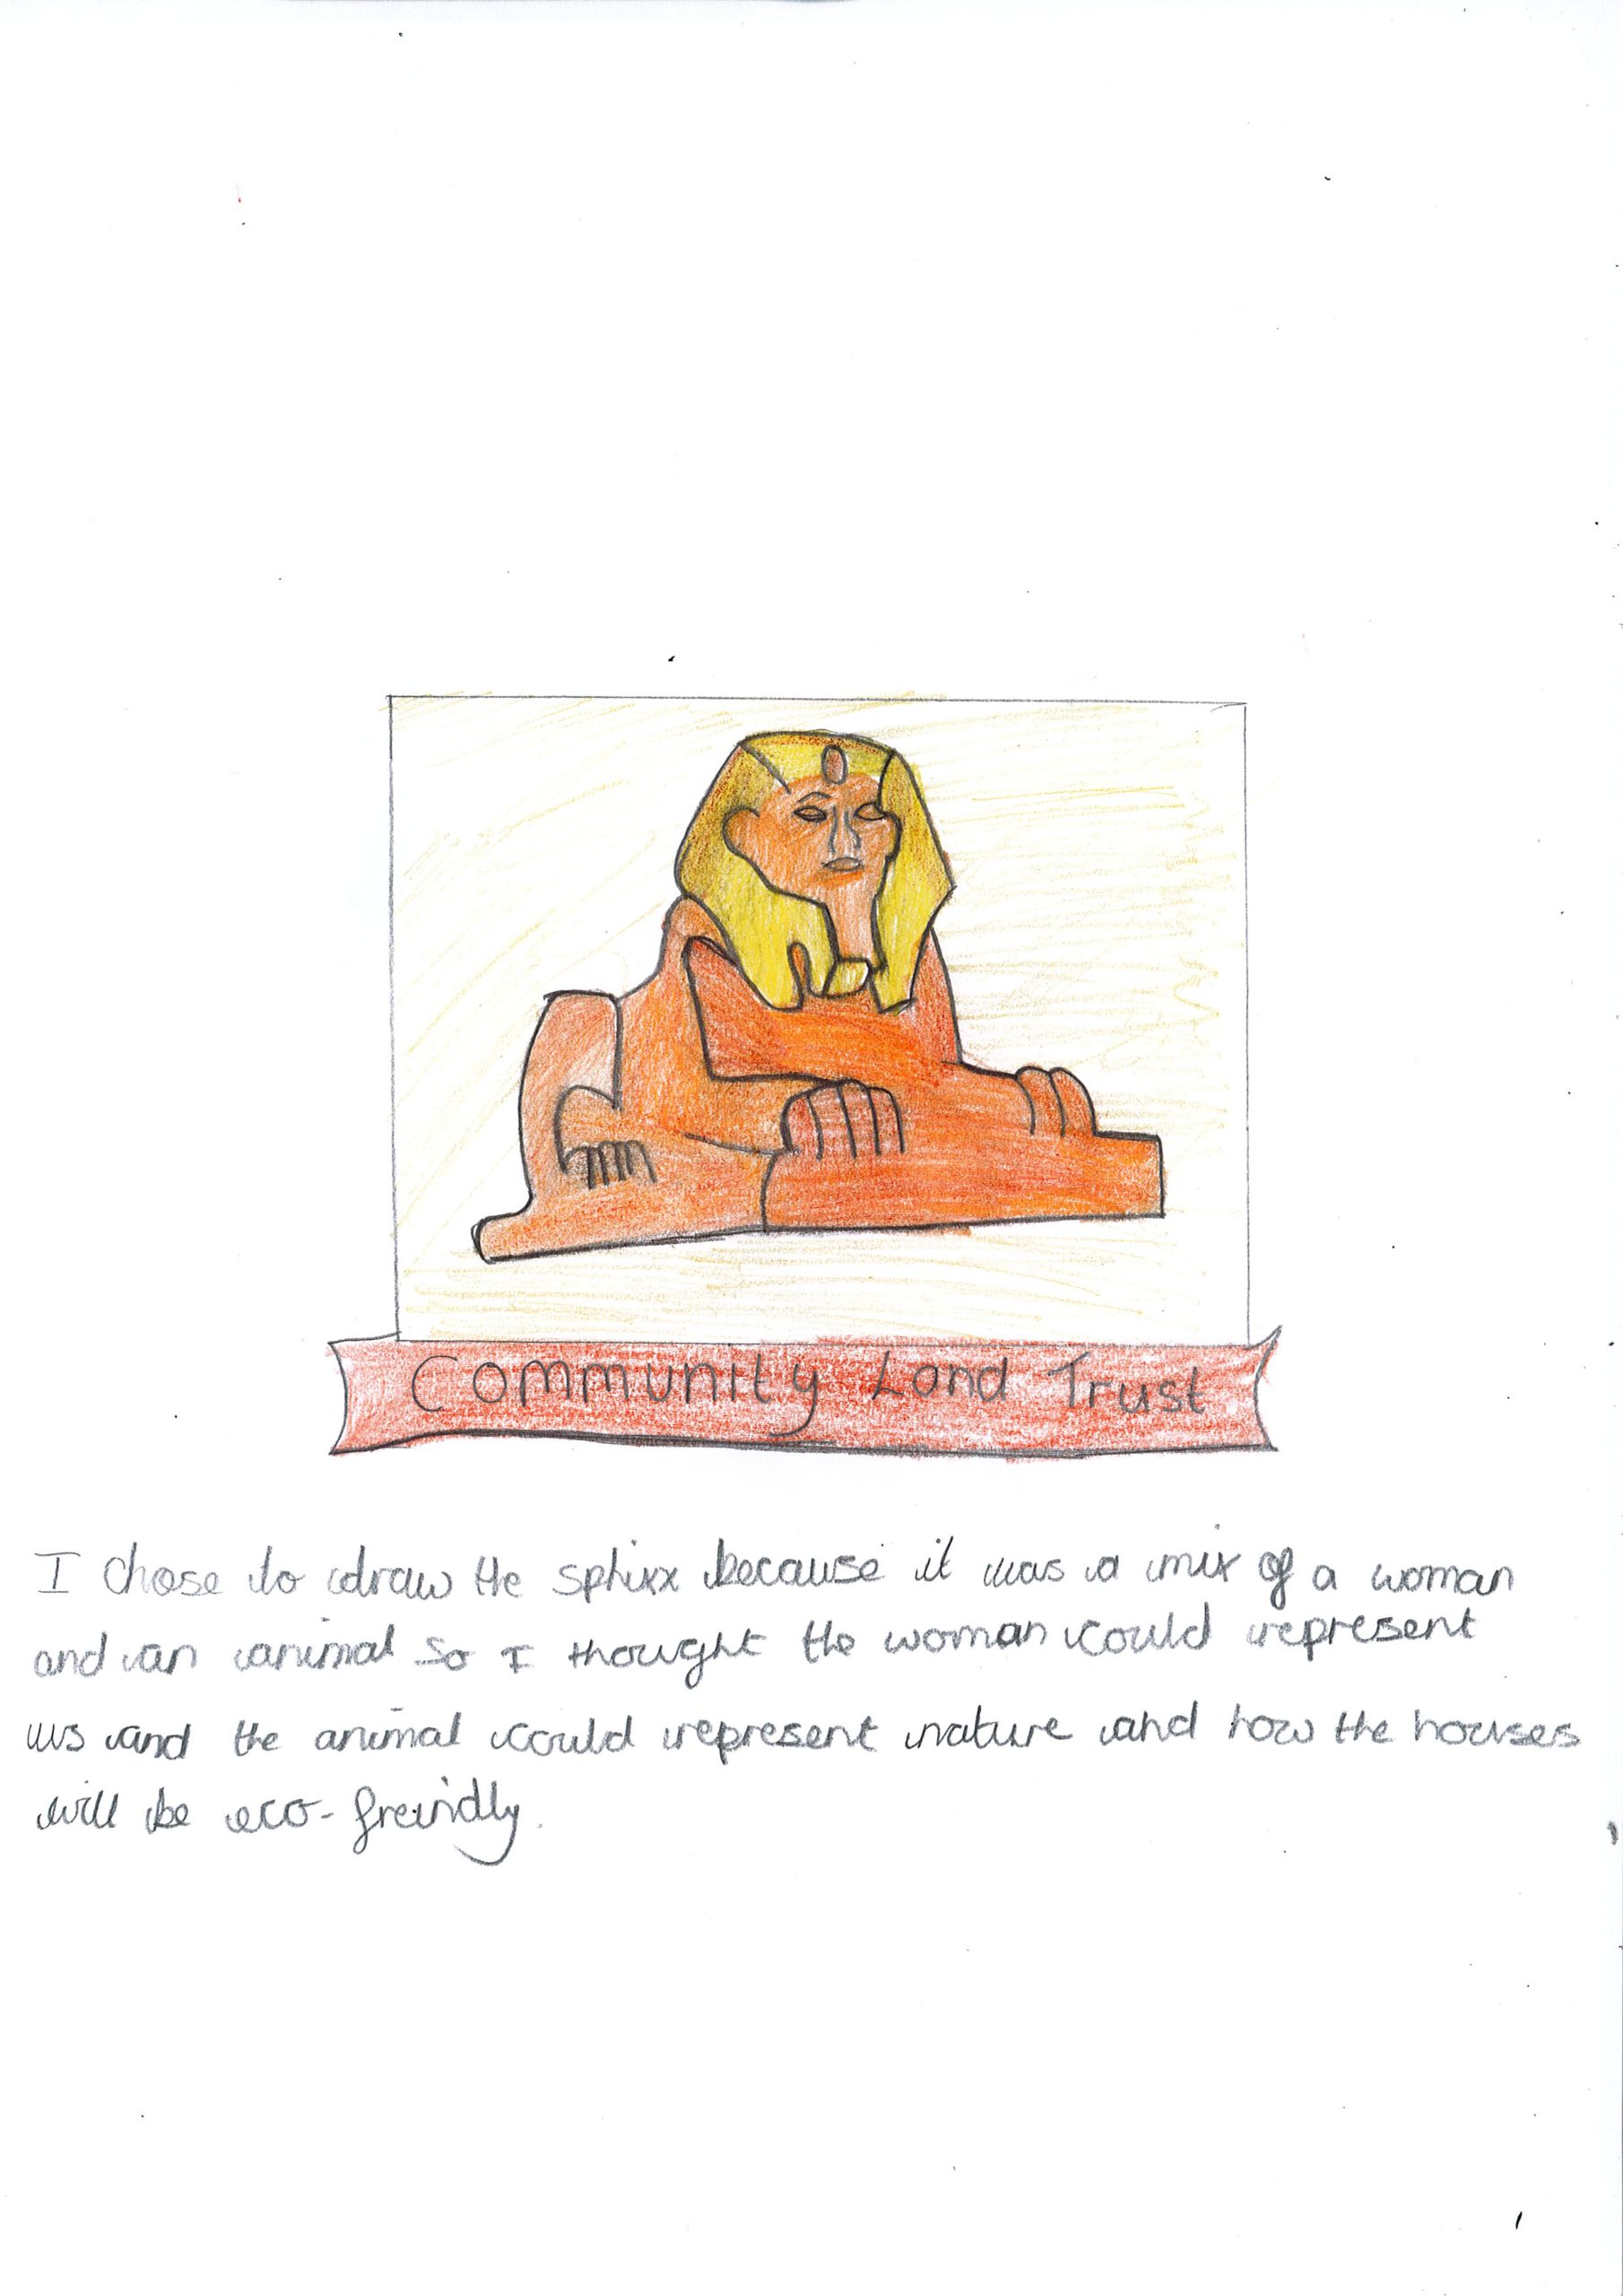 Community Land Trust
I chose to draw the sphixx because it was a mix of a woman
and an animal so I thought the woman could represent
us and the animal could represent nature and how the houses
will be eco-freindly.